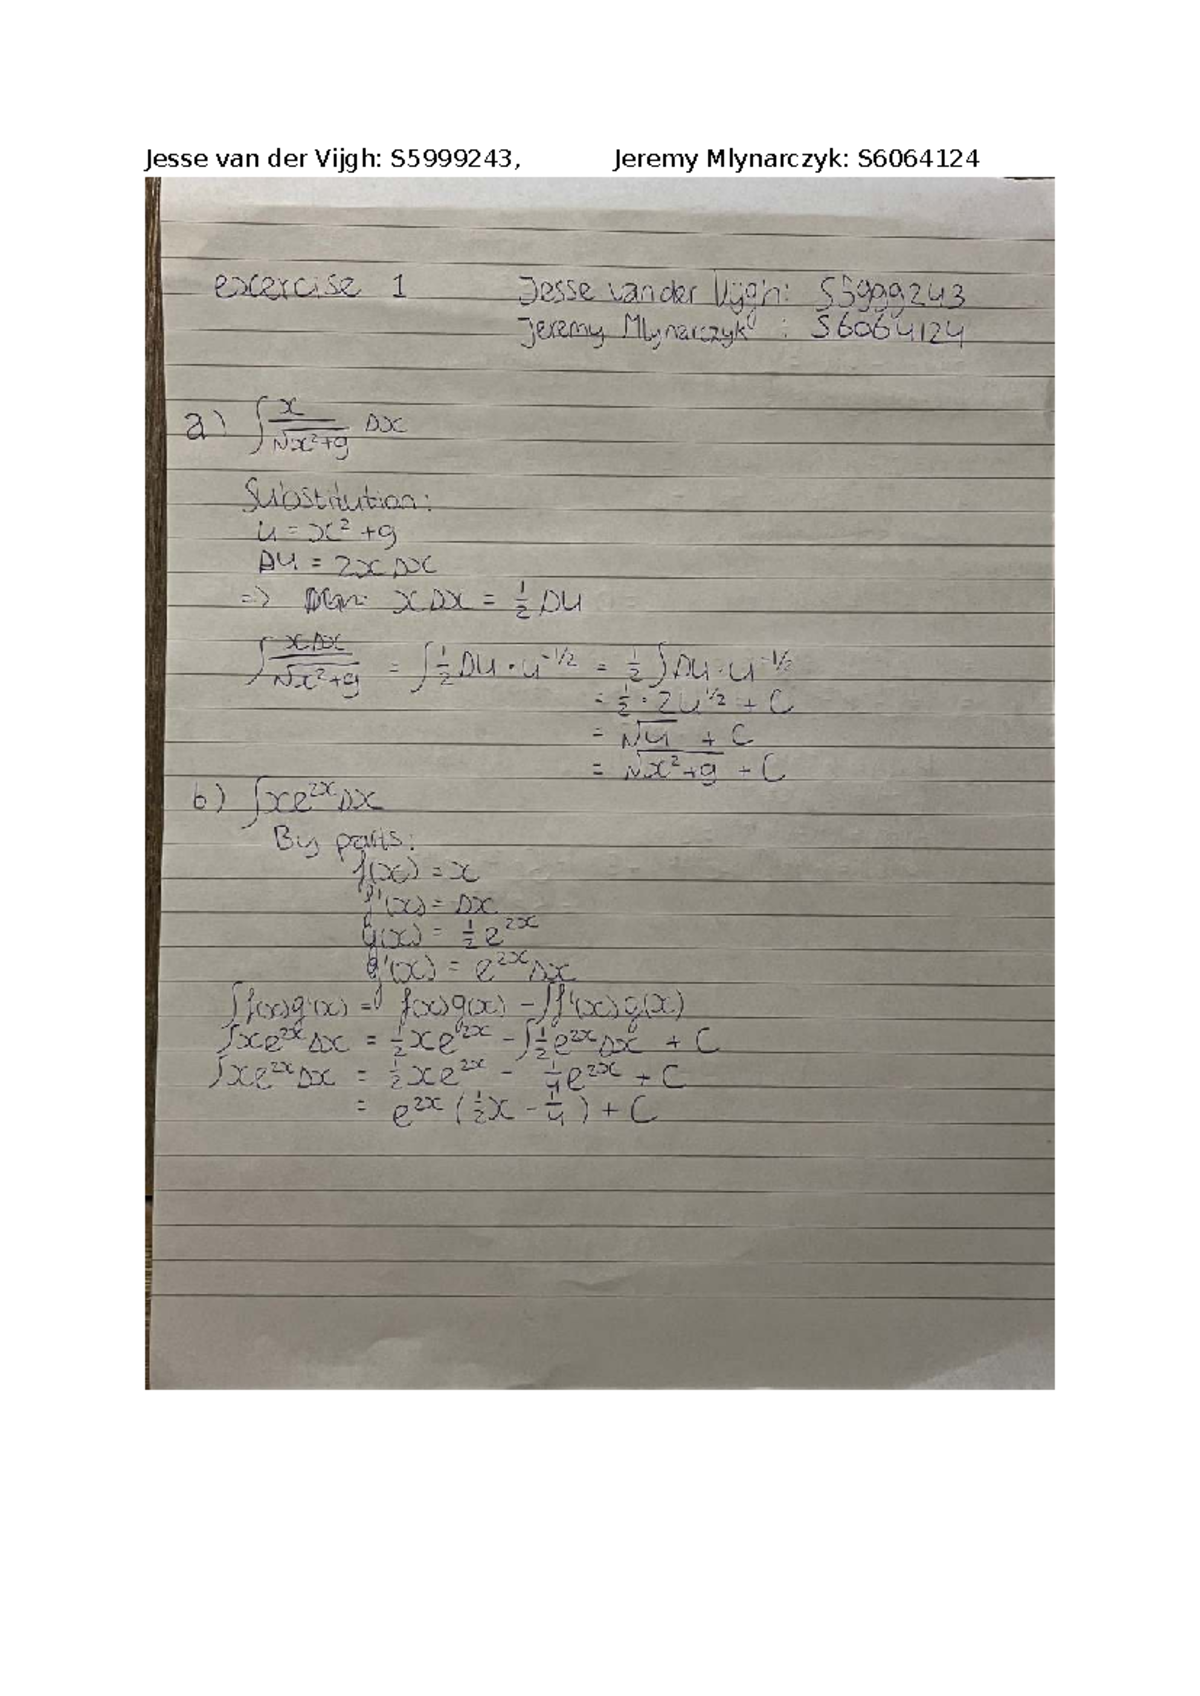 Jesse van der Vijgh: S5999243, Jeremy Mlynarczyk: S6064124
excercise 1 Jesse van der Vijgh: S5999243
Jeremy Mlynarczyk : S6064124
a) ∫ x/√(x²+9) Δx
Substitution:
u = x² + 9
Δu = 2x Δx
=> xΔx = 1/2 Δu
∫ xΔx/√(x²+9) = ∫ 1/2 Δu · u^(-1/2) = 1/2 ∫ Δu · u^(-1/2)
= 1/2 · 2u^(1/2) + C
= √u + C
= √(x²+9) + C
b) ∫xe^(2x)Δx
By parts:
f(x) = x
f'(x) = Δx
g(x) = 1/2 e^(2x)
g'(x) = e^(2x)Δx
∫f(x)g'(x) = f(x)g(x) - ∫f'(x)g(x)
∫xe^(2x)Δx = 1/2 xe^(2x) - ∫1/2 e^(2x)Δx + C
∫xe^(2x)Δx = 1/2 xe^(2x) - 1/4 e^(2x) + C
= e^(2x) (1/2 x - 1/4) + C